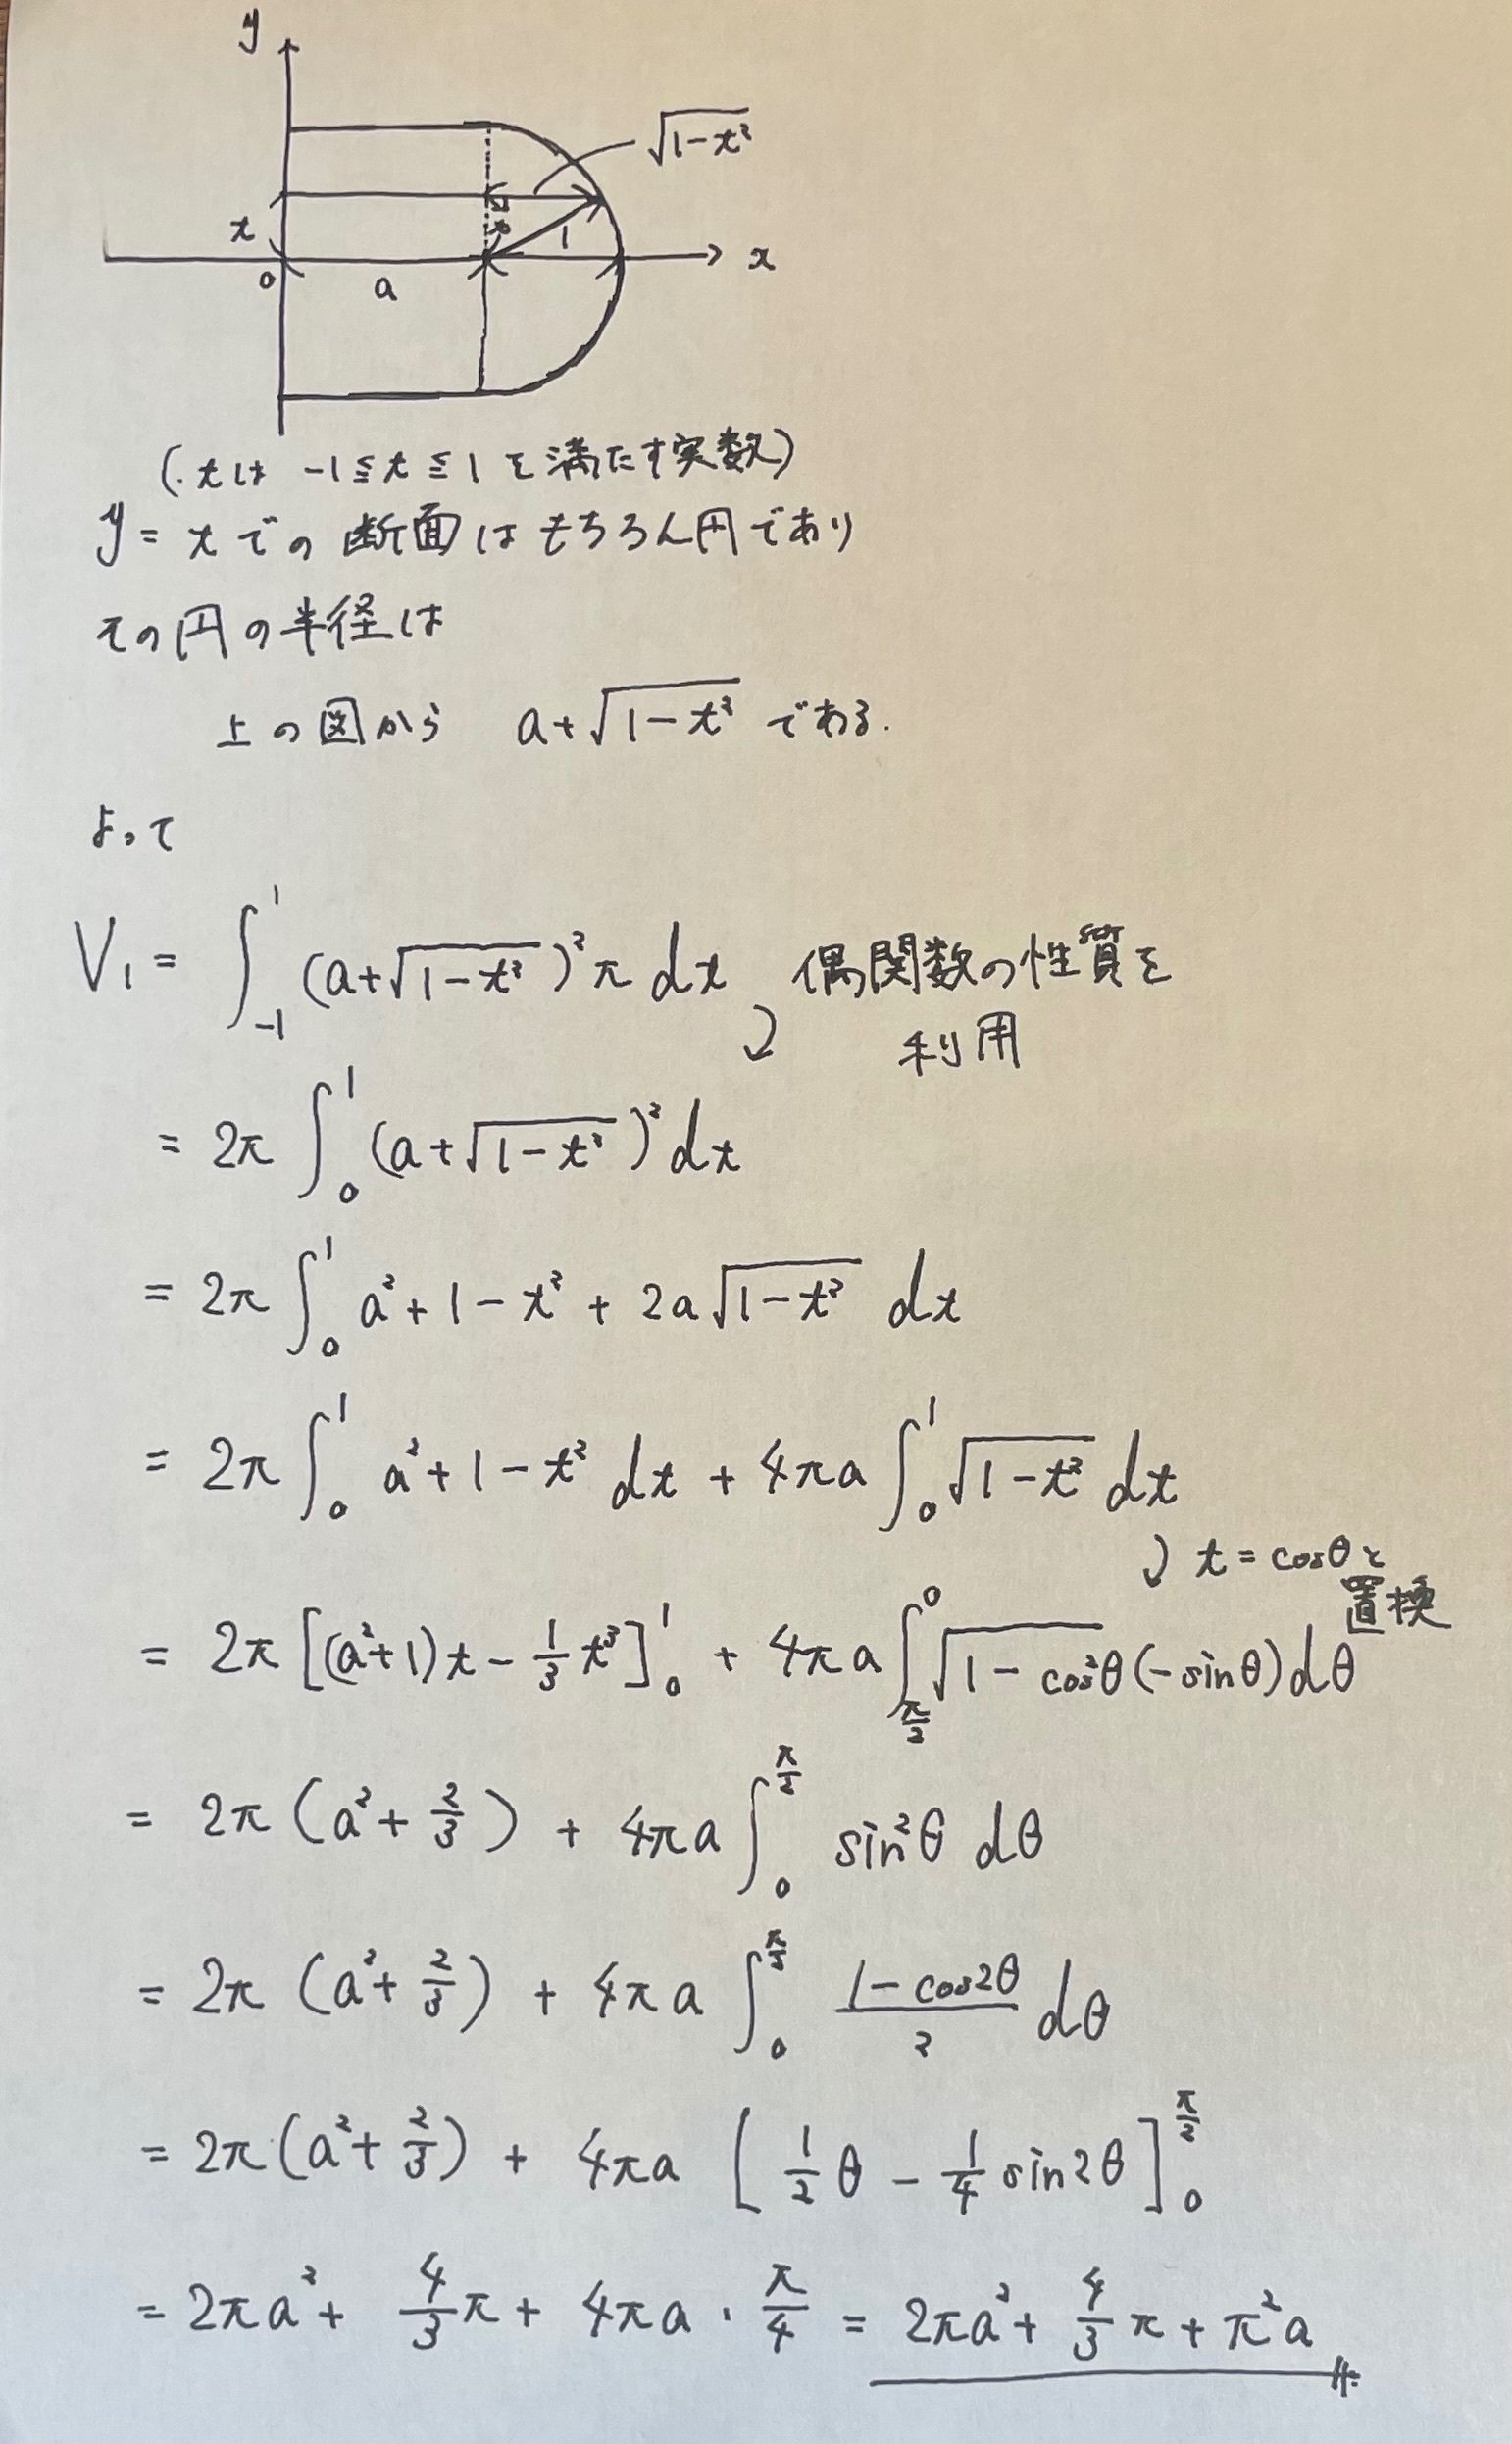 y
√(1-t²)
t
t
1
x
0
a
(tは -1≦t≦1を満たす実数)
y=tでの断面はもちろん円であり
その円の半径は
上の図から a+√(1-t²) である.
よって
V₁ = ∫_{-1}^{1} (a+√(1-t²))²π dt 偶関数の性質を
利用
= 2π ∫_{0}^{1} (a+√(1-t²))² dt
= 2π ∫_{0}^{1} a²+1-t²+2a√(1-t²) dt
= 2π ∫_{0}^{1} a²+1-t² dt + 4πa ∫_{0}^{1} √(1-t²) dt
t=cosθと
置換
= 2π [(a²+1)t - 1/3 t³]_{0}^{1} + 4πa ∫_{π/2}^{0} √(1-cos²θ) (-sinθ)dθ
= 2π (a²+2/3) + 4πa ∫_{0}^{π/2} sin²θ dθ
= 2π (a²+2/3) + 4πa ∫_{0}^{π/2} (1-cos2θ)/2 dθ
= 2π(a²+2/3) + 4πa [1/2 θ - 1/4 sin2θ]_{0}^{π/2}
= 2πa² + 4/3 π + 4πa · π/4 = 2πa² + 4/3 π + π²a